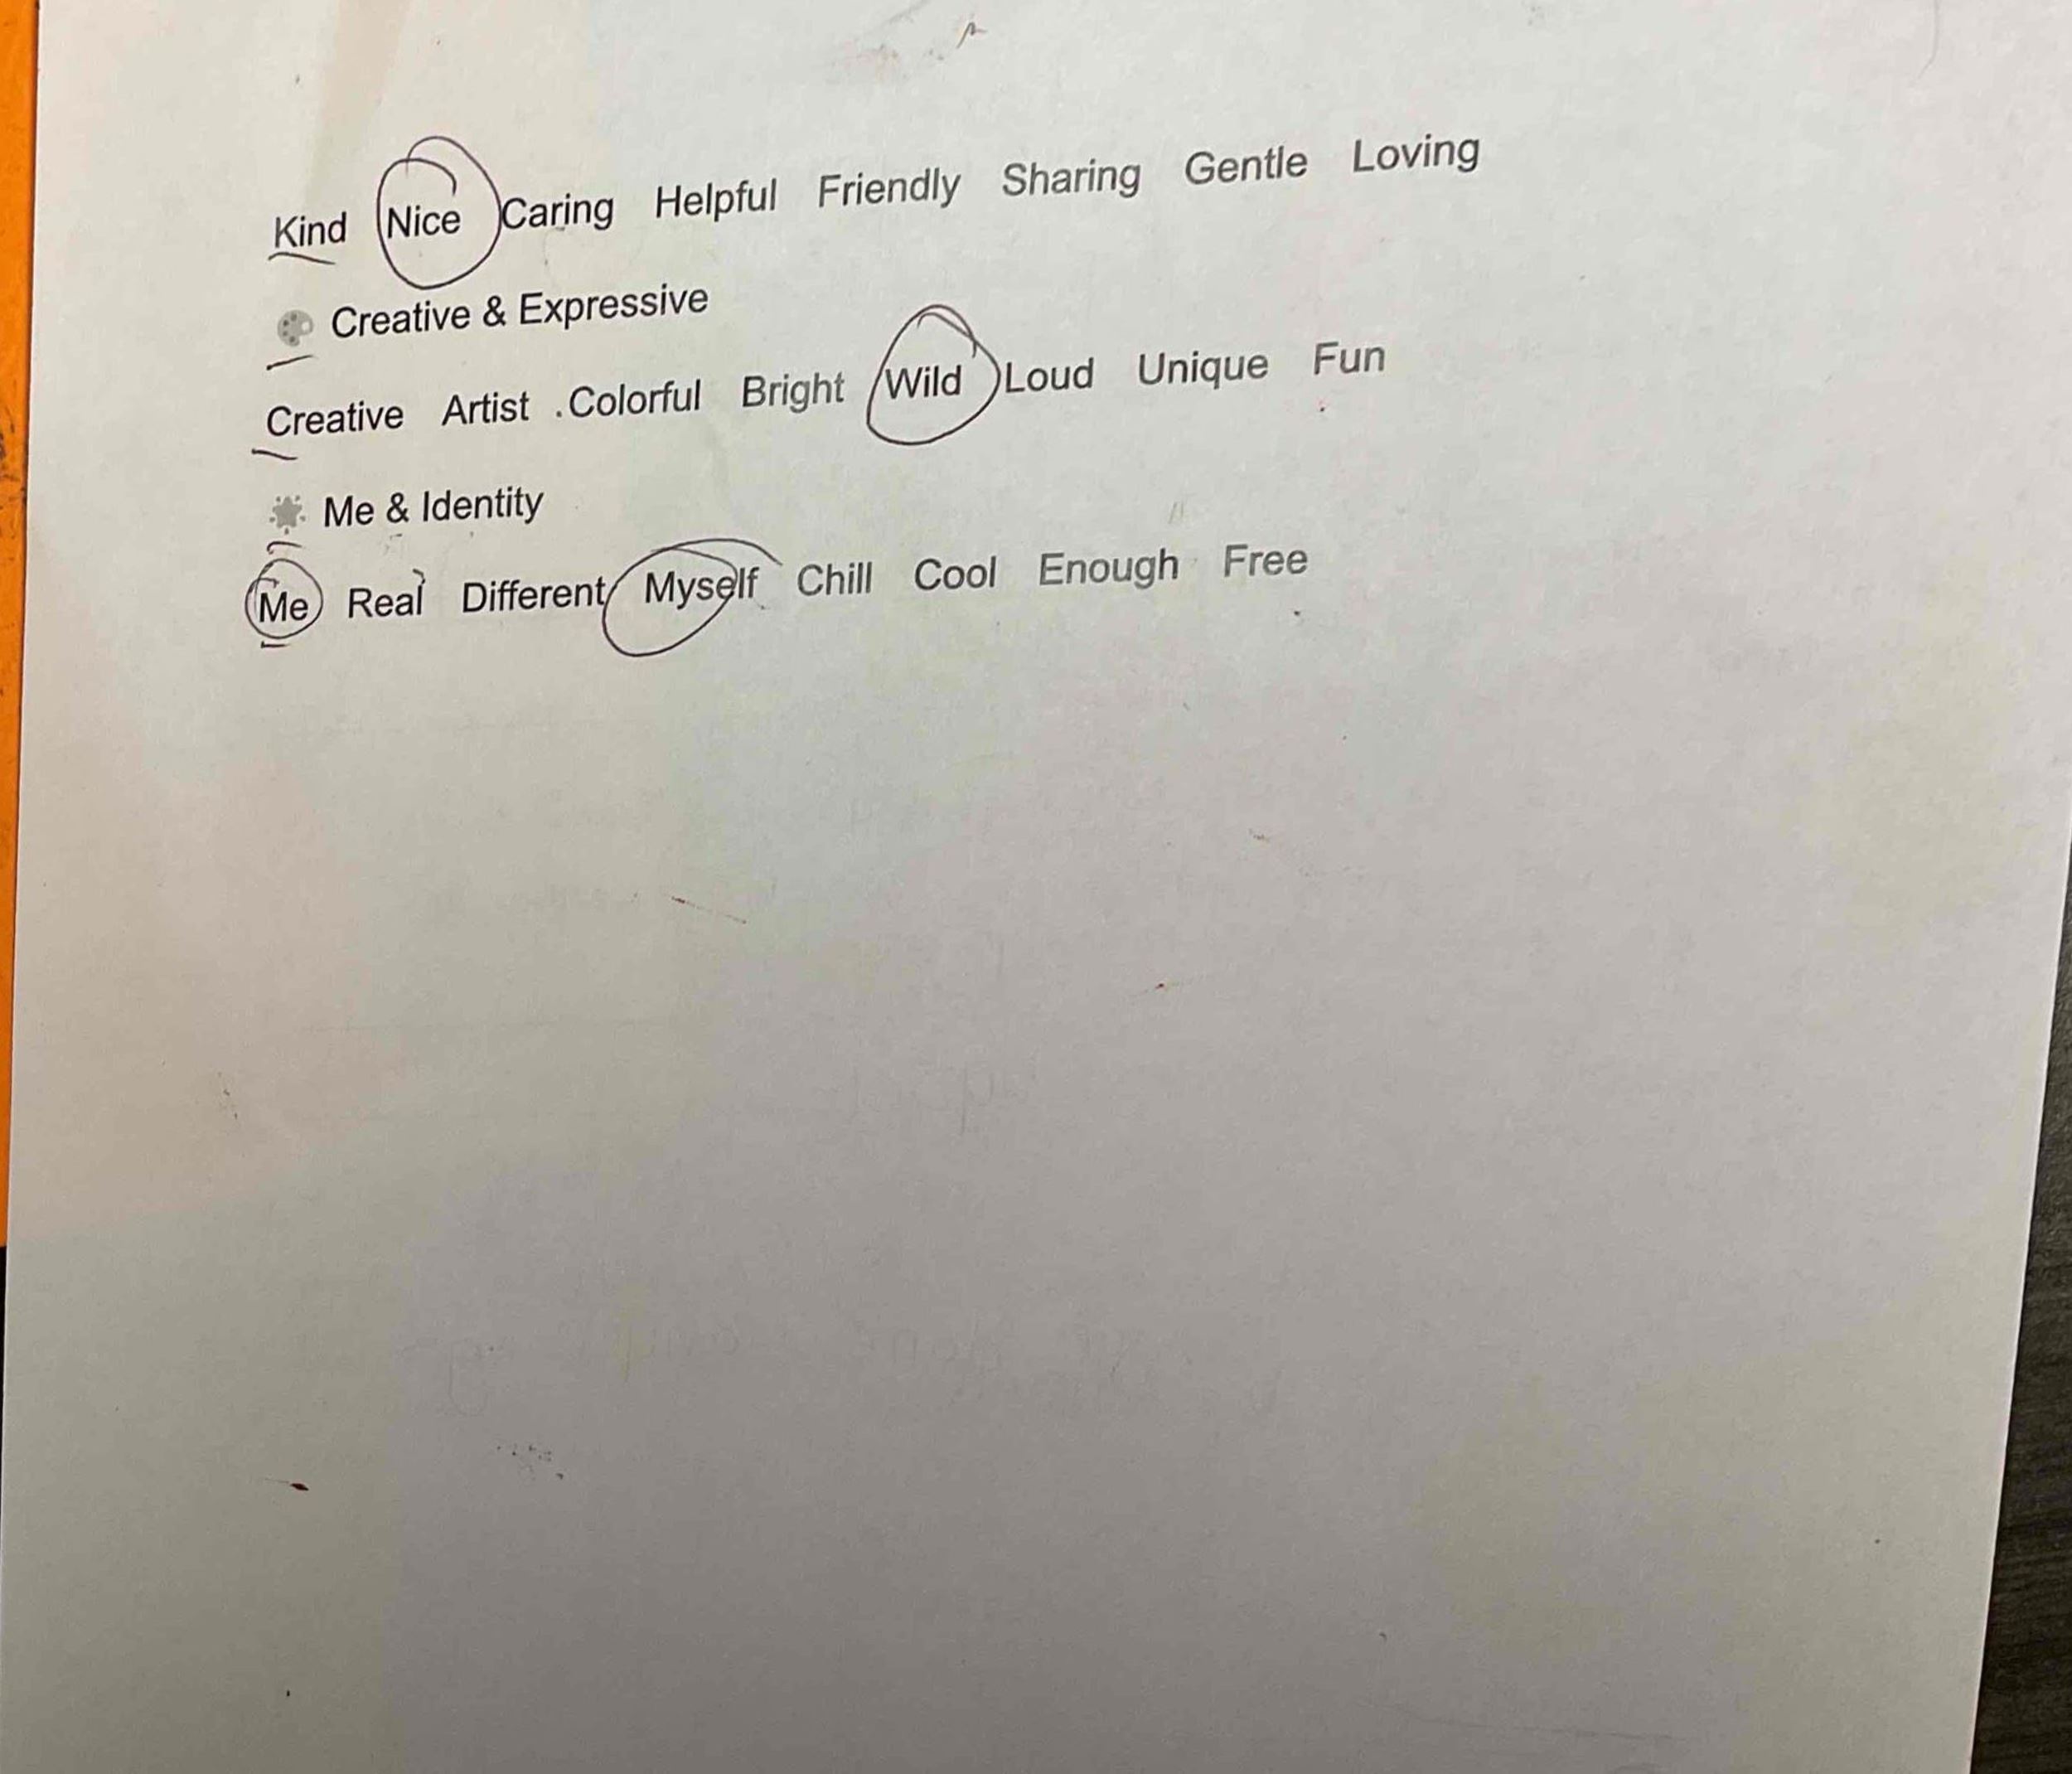 Kind Nice Caring Helpful Friendly Sharing Gentle Loving
Creative & Expressive
Creative Artist Colorful Bright Wild Loud Unique Fun
Me & Identity
Me Real Different Myself Chill Cool Enough Free